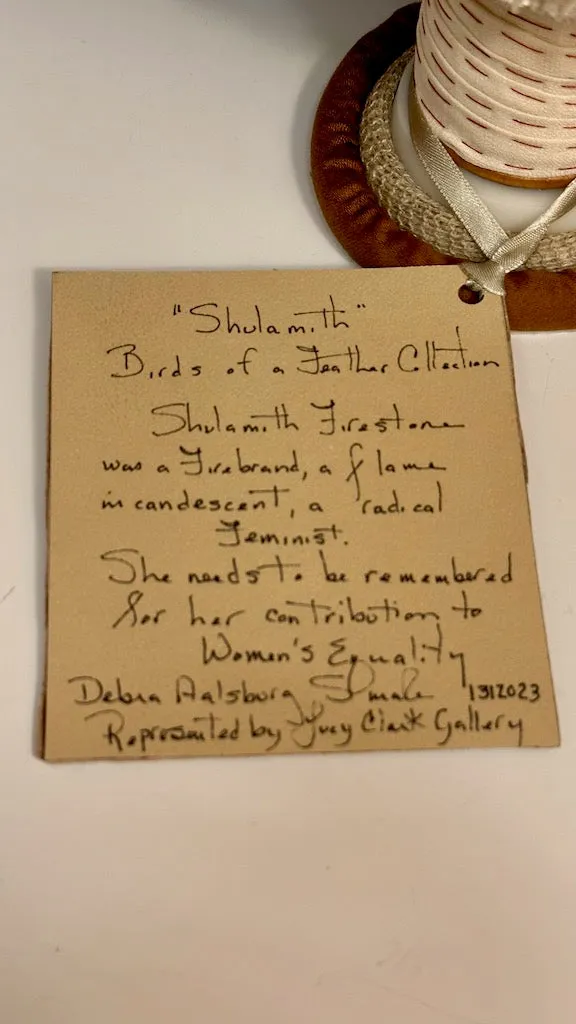 "Shulamith"
Birds of a Feather Collection
Shulamith Firestone
was a Firebrand, a flame
incandescent, a radical
Feminist.
She needs to be remembered
for her contribution to
Women's Equality
Debra Aalsburg 1312023
Represented by Clark Gallery